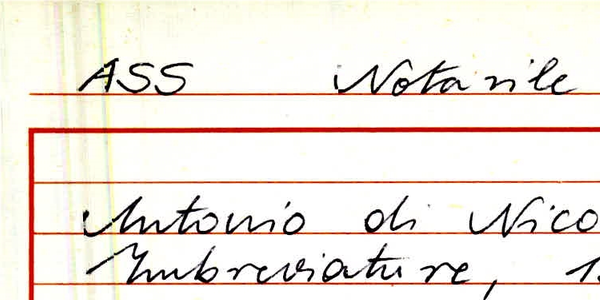 ASS Notarile
Antonio di Nico
Imbreviature, 1